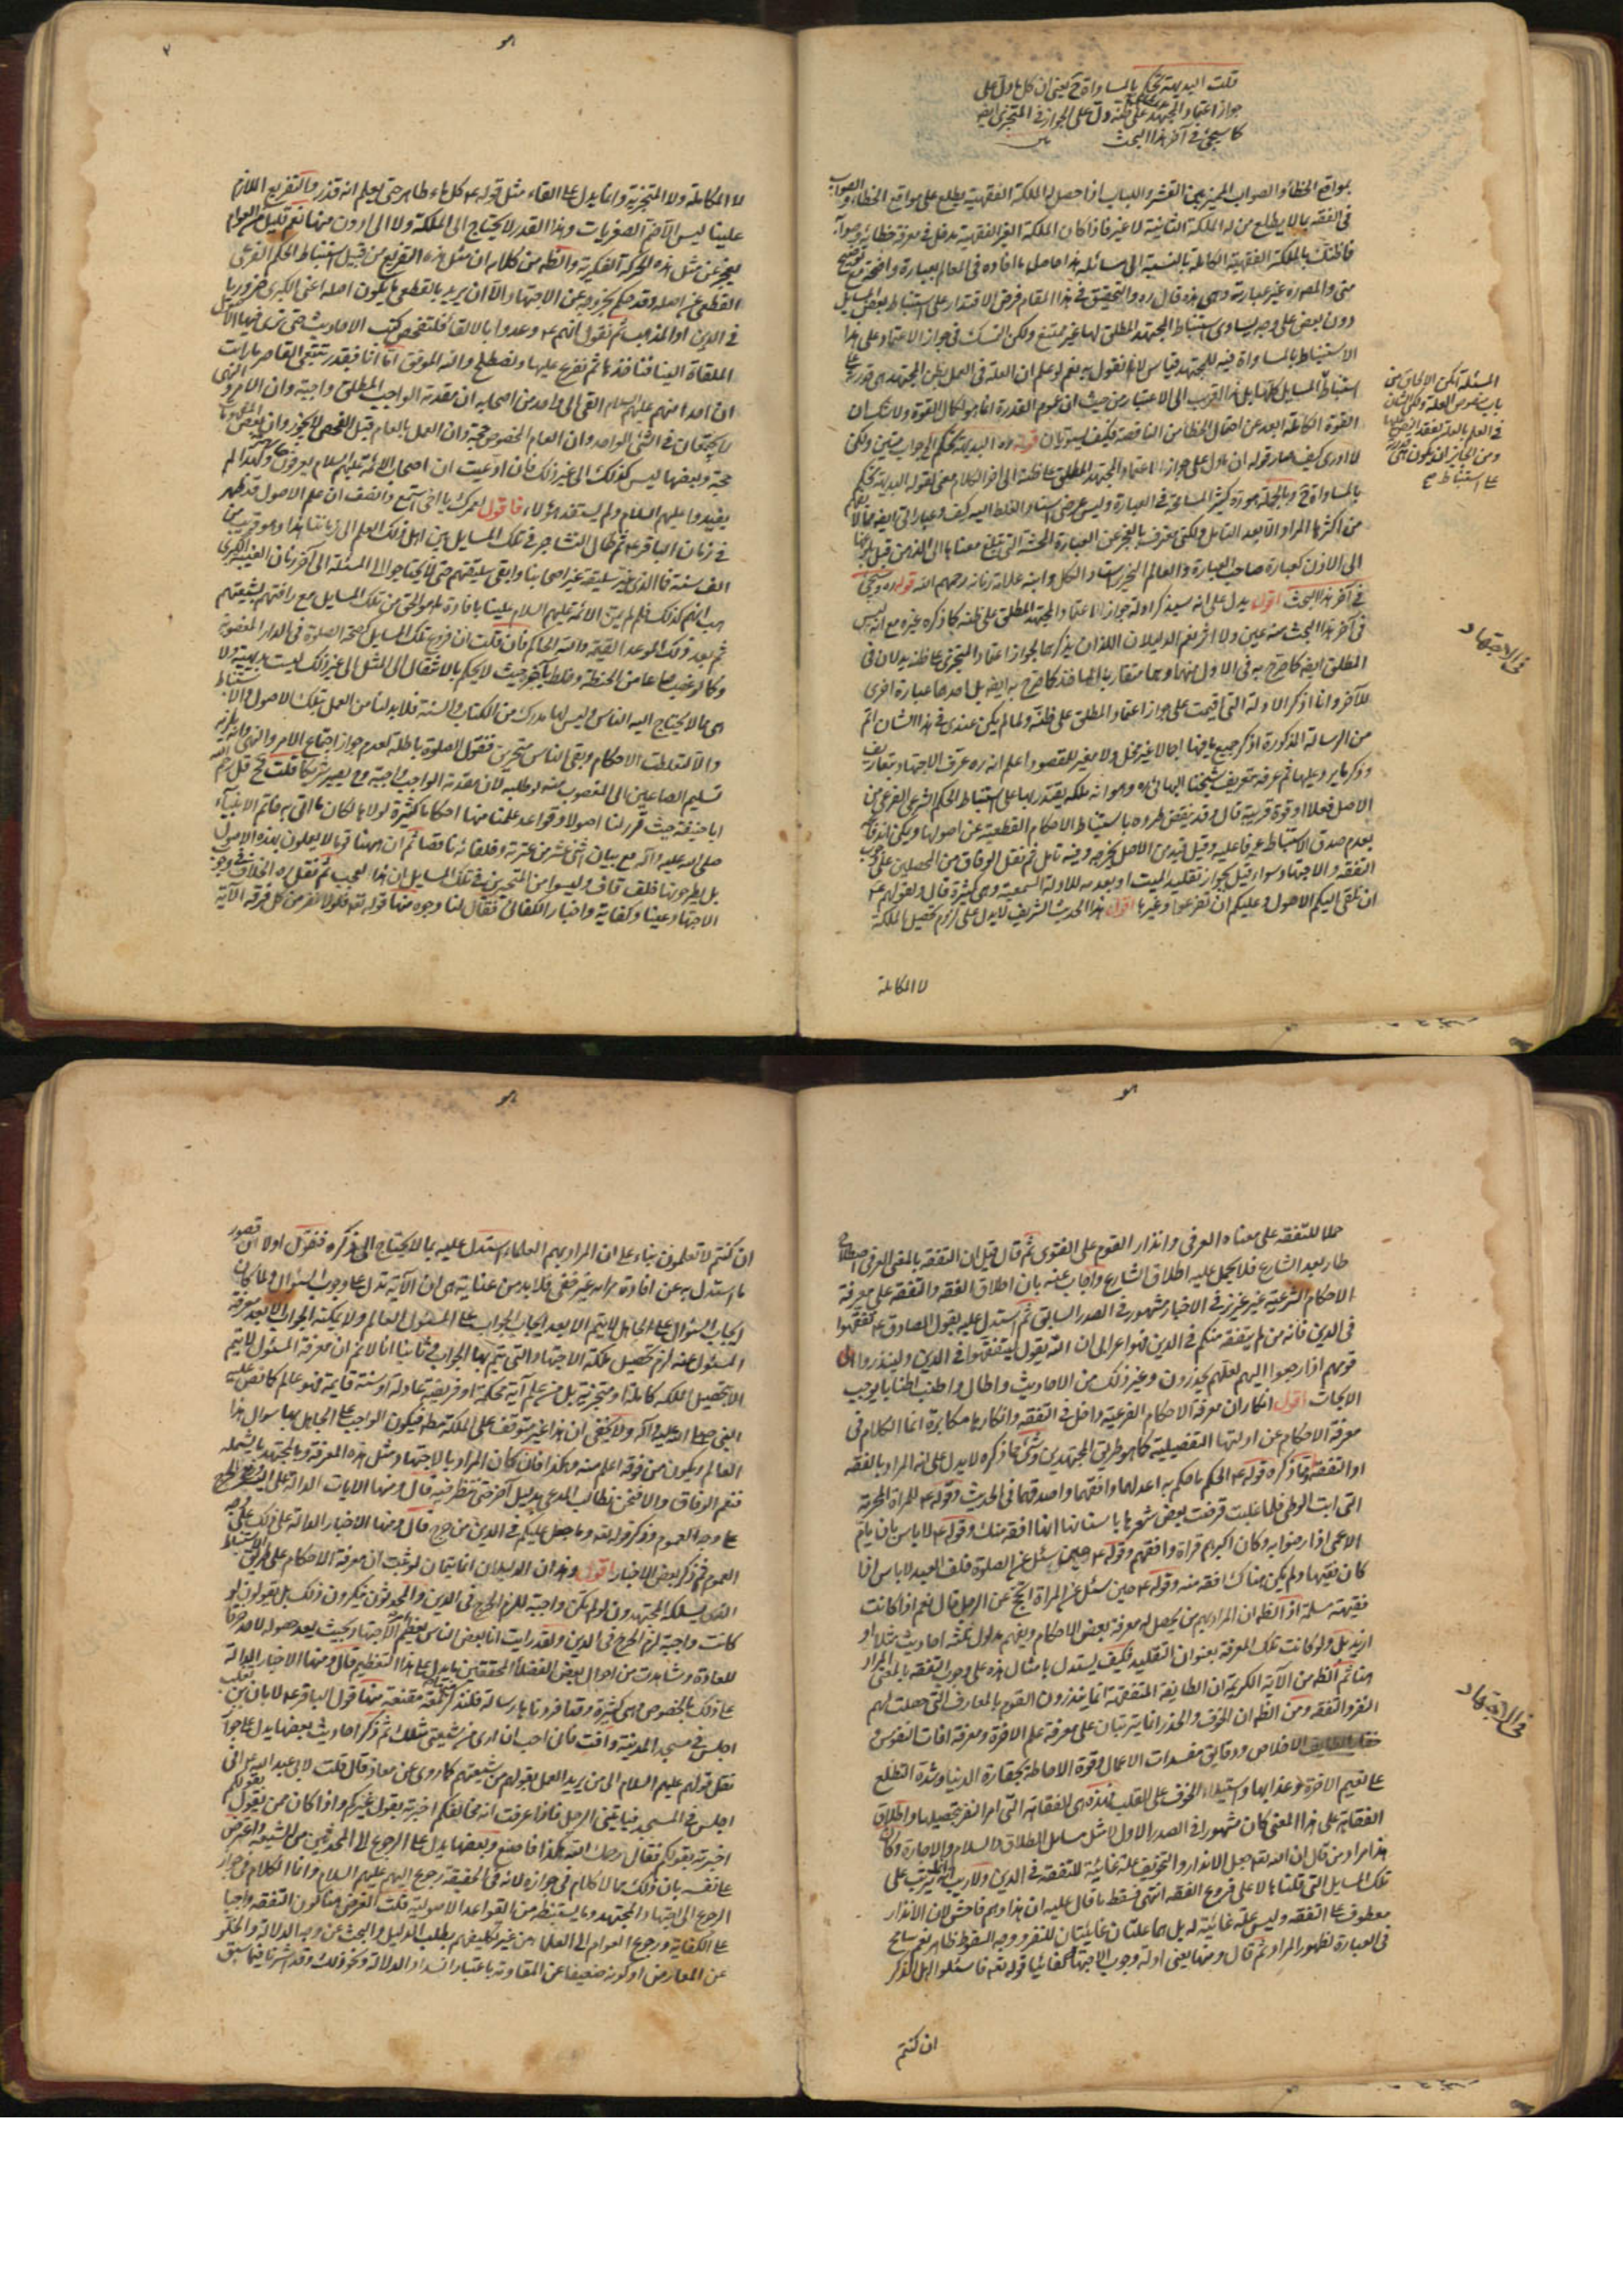 قلت البديهة تحكم بالمساواة ح يعني ان كل ما دل على
جواز اعتماد المجتهد على ظنه دل على الجواز في المتجزي ايضا
كما سيجيء في آخر هذا البحث
بمواقع الخطاء والصواب المميز بين القشر واللباب اذا حصل له الملكة الفقهية يطلع على مواقع الخطاء والصواب
في الفقه ما لا يطلع من له الملكة الثانية لا غير فاذا كان الملكة الغير الفقهية مدخل في معرفة خطائه وصوابه
فما ظنك بالملكة الفقهية الكاملة بالنسبة الى مسائله هذا حاصل ما افاده في المعالم بعبارة واضحة مع توضيح
مني والمصدرة غير عبارته وهي هذه قال ره والتحقيق في هذا المقام فرض الاقتدار على استنباط بعض المسايل
دون بعض على وجه يساوي استنباط المجتهد المطلق لها غير ممتنع ولكن التمسك في جواز الاعتماد على هذا
الاستنباط بالمساواة فيه للمجتهد قياس لا نقول به نعم لو علم ان العلة في العمل بظن المجتهد هي قدرته على
استنباط المسايل كلها بل هذا اقرب الى الاعتبار من حيث ان عموم القدرة انما هو لكمال القوة ولا شك ان
القوة الكاملة ابعد عن احتمال الخطا من الناقصة فكيف يستويان قوله ره البديهة تحكم الى جواب متين ولكن
لا ادري كيف صار قوله ان ما دل على جواز الاعتماد المجتهد المطلق على ظنه الى آخر الكلام معنى لقوله البديهة تحكم
بالمساواة ح وبالجملة هو ره كثير المسامحة في العبارة وليس غرضي اسناد الغلط اليه كيف وعباراتي ايضا مما لا يفهم
من اكثرها المراد الا بعد التامل ولكني معترف بالعجز عن العبارة الحسنة التي تبلغ معناها الى الذهن قبل بلوغها
الى الاذن كعبارة صاحب العبارة والعالم النحرير استاد الكل وابنه علامة زمانه رحمهم الله قوله ره وسيجيء
في آخر هذا البحث اقول يدل على انه سيذكر ادلة جواز الاعتماد المجتهد المطلق على ظنه كما ذكره غيره مع انه ليس
في آخر هذا البحث منه عين ولا اثر نعم الدليلان اللذان يذكرهما لجواز اعتماد المتجزي على ظنه يدلان في
المطلق ايضا كما صرح به في الاول منهما وهما متقاربا المأخذ كما صرح به ايضا بل احدهما عبارة اخرى
للآخر وانا اذكر الادلة التي اقيمت على جواز اعتماد المطلق على ظنه ولما لم يكن عندي في هذا الشان اتم
من الرسالة المذكورة اذكر جميع ما فيها اجمالا غير مخل ولا مغير للمقصود اعلم انه ره عرف الاجتهاد بتعاريف
وذكر ما يرد عليها ثم عرفه بتعريف شيخنا البهائي ره وهو انه ملكة يقتدر بها على استنباط الحكم الشرعي الفرعي من
الاصل فعلا او قوة قريبة قال وقد ينقض طرده باستنباط الاحكام القطعية عن اصولها ويمكن اندفاعه
بعدم صدق الاستنباط عرفا عليه وقيل قيد من الاصل يخرجه وفيه تامل ثم نقل الوفاق من المحصلين على وجوب
التفقه والاجتهاد سواء قيل بجواز تقليد الميت او بعدمه للادلة السمعية وهي كثيرة قال ولقولهم ع
ان نلقي اليكم الاصول وعليكم ان تفرعوا وغيرها اقول هذا الحديث الشريف لا يدل على لزوم تحصيل الملكة
لا الكاملة
المسئلة
في الاجتهاد
لا الكاملة ولا المتجزية وانما يدل على القاء مثل قوله ع كل ماء طاهر حتى يعلم انه قذر والتفريع اللازم
علينا ليس الا ضم الصغريات وهذا القدر لا يحتاج الى الملكة ولا الى ادون منها نعم قليل من العوام
يعجز عن مثل هذه الحركة الفكرية والظ من كلامه ان مثل هذه التفريع من قبيل استنباط الحكم الفرعي
القطعي عن اصله وقد حكم بخروجه عن الاجتهاد الا ان يريد بالقطعي ما يكون اصله اعني الكبرى ضروريا
في الدين او المذهب ثم نقول انهم ع وعدوا بالالقاء فلنتفحص كتب الاحاديث حتى نسلم فيها الاصل
الملقاة الينا فناخذها ثم نفرع عليها ونصطلح والله الموفق اما انا فبقدر تتبعي القاصر ما رايت
ان احدا منهم عليهم السلام القى الى واحد من اصحابه ان مقدمة الواجب المطلق واجبة وان الامر والنهي
لا يجتمعان في الشئ الواحد وان العام المخصوص حجة وان العمل بالعام قبل الفحص لا يجوز وان بعض المفهومات
حجة وبعضها ليس كذلك الى غير ذلك فان ادعيت ان اصحاب الائمة عليهم السلام يعرفون هذا ولهذا لم
يفيدوا عليهم السلام ولم يستفد هؤلاء فاقول لعمرك يا اخي استمع وانصف ان علم الاصول قد ظهر
في زمان الباقر ع ثم طال التشاجر في تلك المسايل بين اهل ذلك العلم الى زماننا هذا وهو قريب من
الف سنة فما الذي غير سليقة غير اصحابنا وابقى سليقتهم حتى لا يحتاجوا الى المسئلة الى آخر زمان الغيبة الكبرى
هب انهم كذلك فلم لم يمن الائمة عليهم السلام علينا بافادة ما هو الحق من تلك المسايل مع رأفتهم بشيعتهم
ثم بعد ذلك الموعد القيمة والله الحاكم فان قلت ان فروع تلك المسايل كصحة الصلوة في الدار المغصوبة
وكما لو غصب صاعا من الحنطة وخلط بآخر حيث لا يحكم بالانتقال الى المثل الى غير ذلك ليست بديهية ولا
هي مما لا يحتاج اليه الناس وليس لها مدرك من الكتاب والسنة فلا بد لنا من العمل بتلك الاصول والاستنباط
والا لتعطلت الاحكام وبقي الناس متحيرين فنقول الصلوة باطلة لعدم جواز اجتماع الامر والنهي وانه يلزمه
تسليم الصاعين الى المغصوب منه لو طلبه لان مقدمة الواجب واجبة وح يصير شريكا قلت فح قل رحم الله
ابا حنيفة حيث قرر لنا اصولا وقواعد علمنا منها احكاما كثيرة لولاها لكان ما اتى به خاتم الانبياء
صلى الله عليه وآله مع بيان اثنى عشر من عترته وخلفائه ناقصا ثم ان ههنا قوما لا يعلمون بهذه الاصول
بل يطرحونها خلف قاف وليسوا من المتحيرين في تلك المسايل ان هذا لعجب ثم نقل ره الخلاف في وجوب
الاجتهاد عينا وكفاية واختار الكفائي فقال لنا وجوه منها قوله تع فلولا نفر من كل فرقة الآية
حملا للتفقه على معناه العرفي وانذار القوم على الفتوى ثم قال قيل ان التفقه بالمعنى العرفي اصطلاح
طار بعد الشارع فلا يحمل عليه اطلاق الشارع واجاب عنه بان اطلاق الفقه والتفقه على معرفة
الاحكام الشرعية غير عزيز في الاخبار مشهور في الصدر السابق ثم استدل عليه بقول الصادق ع تفقهوا
في الدين فانه من لم يتفقه منكم في الدين فهو اعرابي ان الله يقول ليتفقهوا في الدين ولينذروا
قومهم اذا رجعوا اليهم لعلهم يحذرون وغير ذلك من الاحاديث واطال واطنب اطنابا يوجب
الابحاث اقول انكار ان معرفة الاحكام الفرعية داخل في التفقه وانكارها مكابرة انما الكلام في
معرفة الاحكام عن ادلتها التفصيلية كما هو طريق المجتهدين وشئ مما ذكره لا يدل على انه المراد بالفقه
او التفقه فما ذكره قوله ع الحكم ما حكم به اعدلهما وافقههما واصدقهما في الحديث وقوله ع للمراة المحرمة
التي ابت الوطي فلما غلبت قرضت بعض شعرها باسنانها انها افقه منك وقوله ع لا باس بان يؤم
الاعمى اذا رضوا به وكان اكبرهم قراة وافقههم وقوله ع حين سئل عن الصلوة خلف العبد لا باس اذا
كان فقيها ولم يكن هناك افقه منه وقوله ع حين سئل عن المراة اتحج عن الرجل قال نعم اذا كانت
فقيهة مسلمة اذ الظ ان المراد بهم من يحصل له معرفة بعض الاحكام ويفهم مدلول ثلثة احاديث مثلا او
ازيد بل ولو كانت تلك المعرفة بعنوان التقليد فكيف يستدل بامثال هذه على وجوب التفقه بالمعنى المراد
هنا ثم الظ من الآية الكريمة ان الطايفة المتفقهة انما ينذرون القوم بالمعارف التي حصلت لهم
النفر والتفقه ومن الظ ان الخوف والحذر انما يترتبان على معرفة علم الآخرة ومعرفة افات النفوس و
الاخلاص ودقايق مفسدات الاعمال وقوة الاحاطة بحقارة الدنيا وشدة التطلع
على نعيم الآخرة وعذابها واستيلاء الخوف على القلب فهذه هي الفقاهة التي امر النفر بتحصيلها واطلاق
الفقاهة على هذا المعنى كان مشهورا في الصدر الاول لا مثل مسايل الطلاق والسلم والاجارة وكان
هذا مراد من قال ان الله تعالى جعل الانذار والتخويف علة غائية للتفقه في الدين ولا ريب انه انما يترتب على
تلك المسايل التي قلنا ها لا على فروع الفقه انتهى فسقط ما قال عليه ان هذا وهم فاحش لان الانذار
معطوف على التفقه وليس علة غائية له بل هما علتان غائيتان للنفر ووجه السقوط ظاهر نعم سامح
في العبارة لظهور المراد ثم قال ومنها يعني ادلة وجوب الاجتهاد كفائيا قوله تع فاسئلوا اهل الذكر
ان كنتم
في الاجتهاد
ان كنتم لا تعلمون بناء على ان المراد بهم العلماء واستدل عليه بما لا يحتاج الى ذكره فنقول اولا ان
ما استدل به عن افادة مرامه غير خفي فلا بد من عناية هي ان الآية تدل على وجوب السؤال ولما كان
ايجاب السئوال على الجاهل لا يتم الا بعد ايجاب الجواب على المسئول العالم ولا يمكنه الجواب الا بعد معرفة
المسئول عنه لزم تحصيل ملكة الاجتهاد والتي يتم بها الجواب وثانيا انا لا نم ان معرفة المسئول لا يتم
الا بتحصيل الملكة كاملة او متجزية بل من علم آية محكمة او فريضة عادلة او سنة قايمة فهو عالم كما نص عليه
النبي صلى الله عليه وآله ولا يخفى ان هذا غير متوقف على الملكة مط فيكون الواجب على الجاهل بها سوال هذا
العالم ويكون من فوقه اعلم منه وهكذا فان كان المراد بالاجتهاد مثل هذه المعرفة وبالمجتهد ما يشمله
فنعم الوفاق والا فنحن نطالب المدعى بدليل آخر حتى ننظر فيه قال ومنها الايات الدالة على نفي الحرج
على وجه العموم وذكر قوله تع وما جعل عليكم في الدين من حرج قال ومنها الاخبار الدالة على ذلك على وجه
العموم ثم ذكر بعض الاخبار اقول وهذان الدليلان انما يتمان لو ثبت ان معرفة الاحكام على طريق الاستنباط
الذي يسلكه المجتهدون لو لم تكن واجبة للزم الحرج في الدين والمحدثون ينكرون ذلك بل يقولون لو
كانت واجبة لزم الحرج في الدين ولقد رايت انا بعض الناس يعظم امر الاجتهاد بحيث يعد حصوله لاحد خرقا
للعادة وشاهدت من احوال بعض الفضلاء المحققين ما يدل على هذا التعظيم قال ومنها الاخبار الدالة
على ذلك بالخصوص وهي كثيرة وقد افردنا بها رسالة فلنذكر نبذة مقنعة منها قول الباقر ع لابان بن تغلب
اجلس في مسجد المدينة وافت فاني احب ان ارى من شيعتي مثلك ثم ذكر احاديث بعضها يدل على جواز
نقل قولهم عليهم السلام الى من يريد العمل بقولهم من شيعتهم كما روي عن معاذ قال قلت لابي عبد الله ع اني
اجلس في المسجد فياتيني الرجل فاذا عرفت انه مخالفكم اخبرته بقول غيركم واذا كان ممن يقول بقولكم
اخبرته بقولكم فقال رحمك الله هكذا فاصنع وبعضها يدل على الرجوع الى المحدثين من الشيعة واعترض
على نفسه بان ذلك مما لا كلام في جوازه لانه في الحقيقة رجوع اليهم عليهم السلام وانما الكلام في جواز
الرجوع الى اجتهاد المجتهد وما يستنبطه من القواعد الاصولية قلت الغرض هنا كون التفقه واجبا
على الكفاية ورجوع العوام الى العلماء من غير تكليفهم بطلب الدليل والبحث عن وجه الدلالة والخلو
عن المعارض او كونه ضعيفا عن المقاومة باعتبار السند او الدلالة ونحو ذلك وقد اشرنا فيما سبق